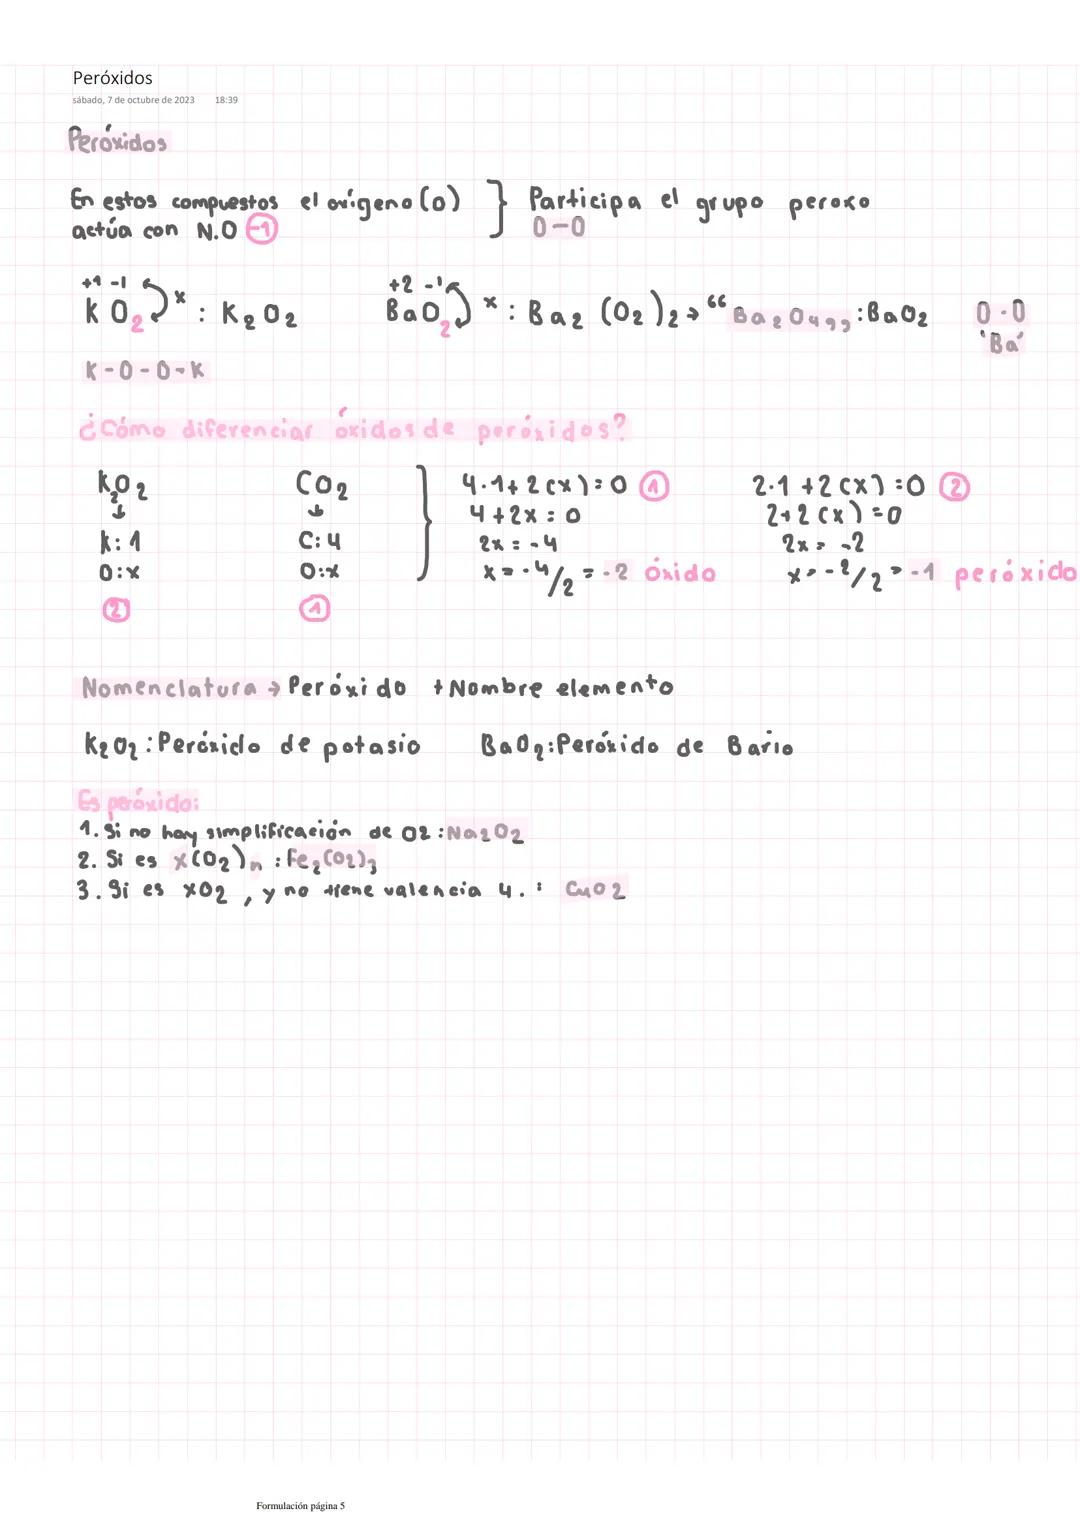 Peróxidos
sábado, 7 de octubre de 2023 18:39
Peróxidos
En estos compuestos el oxígeno (O) } Participa el grupo peroxo
actúa con N.O -1 O-O
+1 -1 +2 -1
K O2 x : K2O2 BaO2 x : Ba2 (O2)2 → "Ba2O4" : BaO2 O-O
K-O-O-K 'Ba'
¿Cómo diferenciar óxidos de peróxidos?
K2O2 CO2 4·1+2(x)=0 ① 2·1+2(x)=0 ②
↓ ↓ 4+2x=0 2+2(x)=0
K:1 C:4 2x=-4 2x=-2
O:x O:x x=-4/2=-2 óxido x=-2/2=-1 peróxido
② ①
Nomenclatura → Peróxido + Nombre elemento
K2O2: Peróxido de potasio BaO2: Peróxido de Bario
Es peróxido:
1. Si no hay simplificación de O2: Na2O2
2. Si es X(O2)n : Fe2(O2)3
3. Si es XO2, y no tiene valencia 4. : CuO2
Formulación página 5